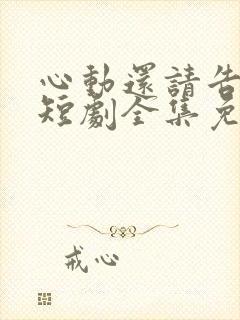 心動還請告
短劇全集免
戒心